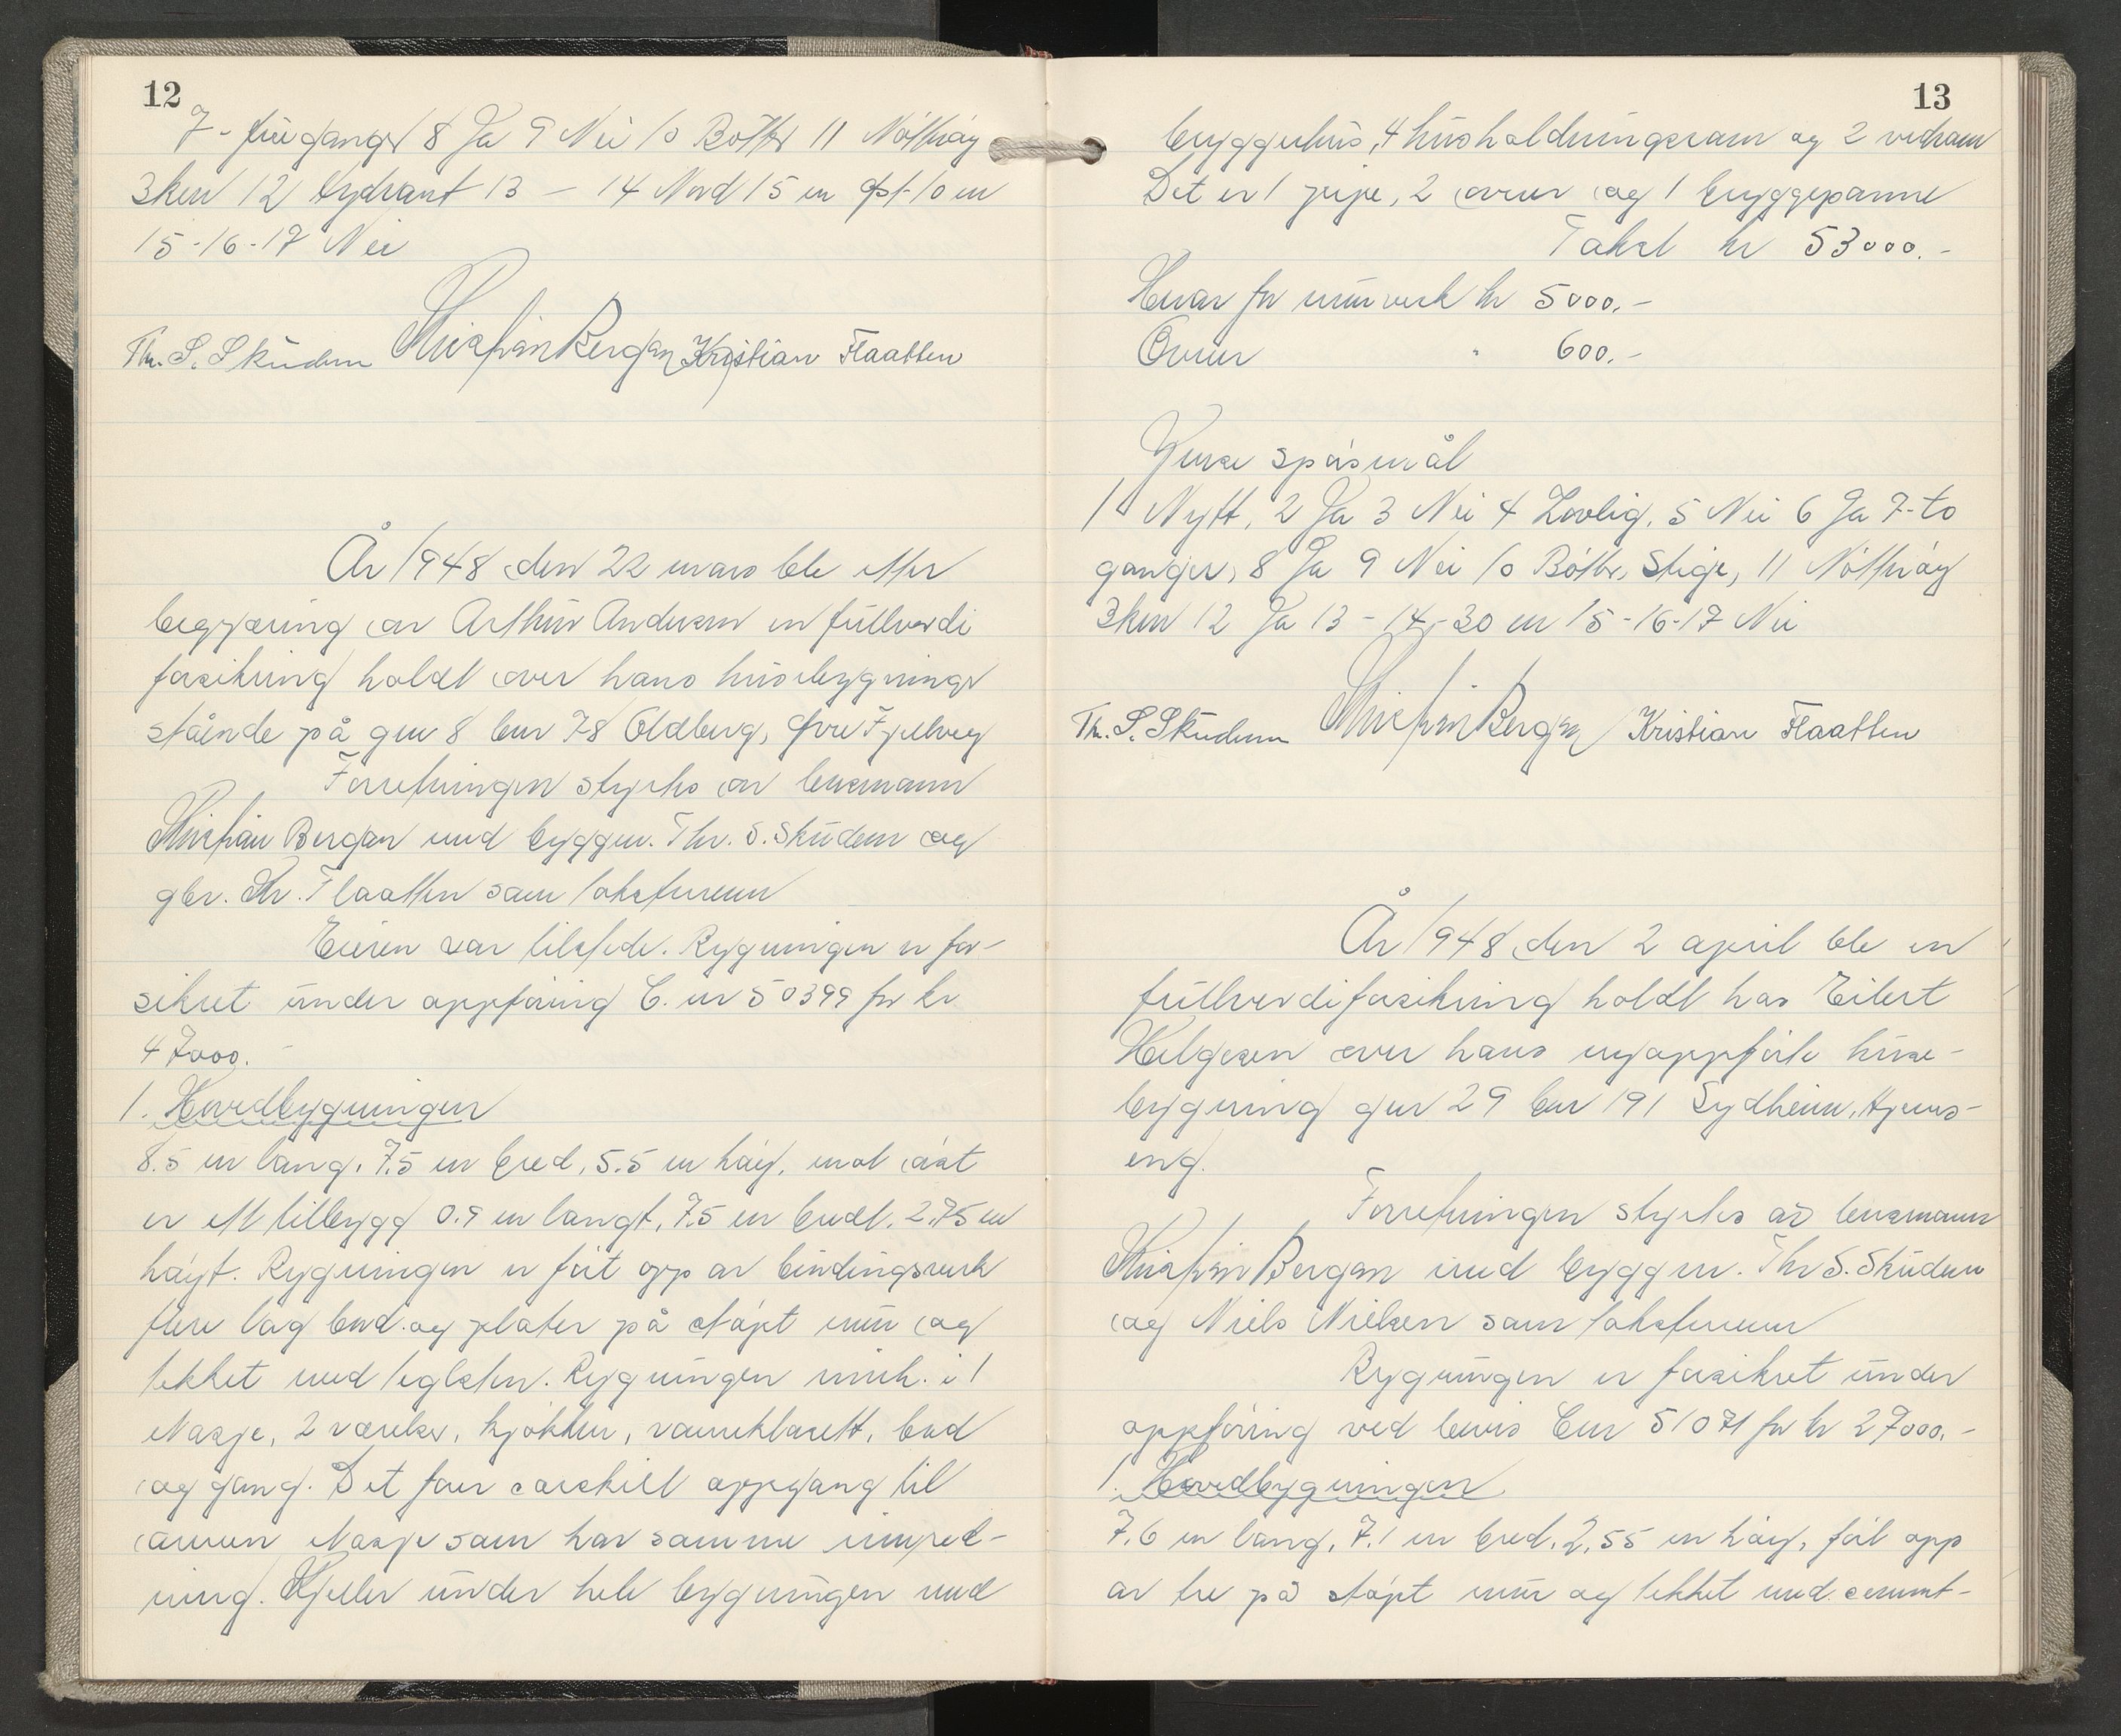 12
7 - fire ganger 8 Ja 9 Nei 10 Bötter 11 Nötteröy
3 km 12 Hydrant 13 — 14 Nord 15 m Öst 10 m
15-16-17 Nei
Thr. S. Skudem Kristian Bergan Kristian Flaatten
År 1948 den 22 mars ble etter
begjæring av Arthur Andersen en fullverdi
forsikring holdt over hans husebygninger
stående på gnr 8 bnr 78 Oldberg, Øvre Fjellveg
Forretningen styrtes av lensmann
Kristian Bergan med byggm. Thr. S. Skudem og
gbr. Kr. Flaatten som takstmenn
Eieren var tilstede. Bygningen er for-
sikret under oppföring B. nr 50399 for kr
47000.-
1. Hovedbygningen
8.5 m lang, 7.5 m bred, 5.5 m höy, mot öst
er ett tilbygg 0.9 m langt, 7.5 m bredt, 2.75 m
höyt. Bygningen er fört opp av bindingsverk
flere lag bord og plater på stöpt mur og
tekket med teglsten. Bygningen innh. i 1
etasje, 2 værelser, kjökken, vannklosett, bad
og gang. Det förer særskilt oppgang til
annen etasje som har samme innred-
ning. Kjeller under hele bygningen med
13
bryggerhus, 4 husholdningsrom og 2 vedrom
Det er 1 pipe, 2 ovner og 1 bryggepanne
Takst kr 53000.-
Herav for murverk kr 5000.-
Ovner " 600.-
Ymse spörsmål
1 Nytt, 2 Ja 3 Nei 4 Lovlig, 5 Nei 6 Ja 7-to
ganger, 8 Ja 9 Nei 10 Bötter, Stige, 11 Nötteröy
3 km 12 Ja 13 - 14 - 30 m 15-16-17 Nei
Thr. S. Skudem Kristian Bergan Kristian Flaatten
År 1948 den 2 april ble en
fullverdiforsikring holdt hos Eilert
Helgesen over hans nyoppförte huse-
bygning gnr 29 bnr 191 Sydheim, Hjems-
eng.
Forretningen styrtes av lensmann
Kristian Bergan med byggm. Thr S. Skudem
og Niels Nielsen som takstmenn
Bygningen er forsikret under
oppföring ved bevis Bnr 51071 for kr 27000.-
1. Hovedbygningen
7.6 m lang, 7.1 m bred, 2.55 m höy, fört opp
av tre på stöpt mur og tekket med cement-